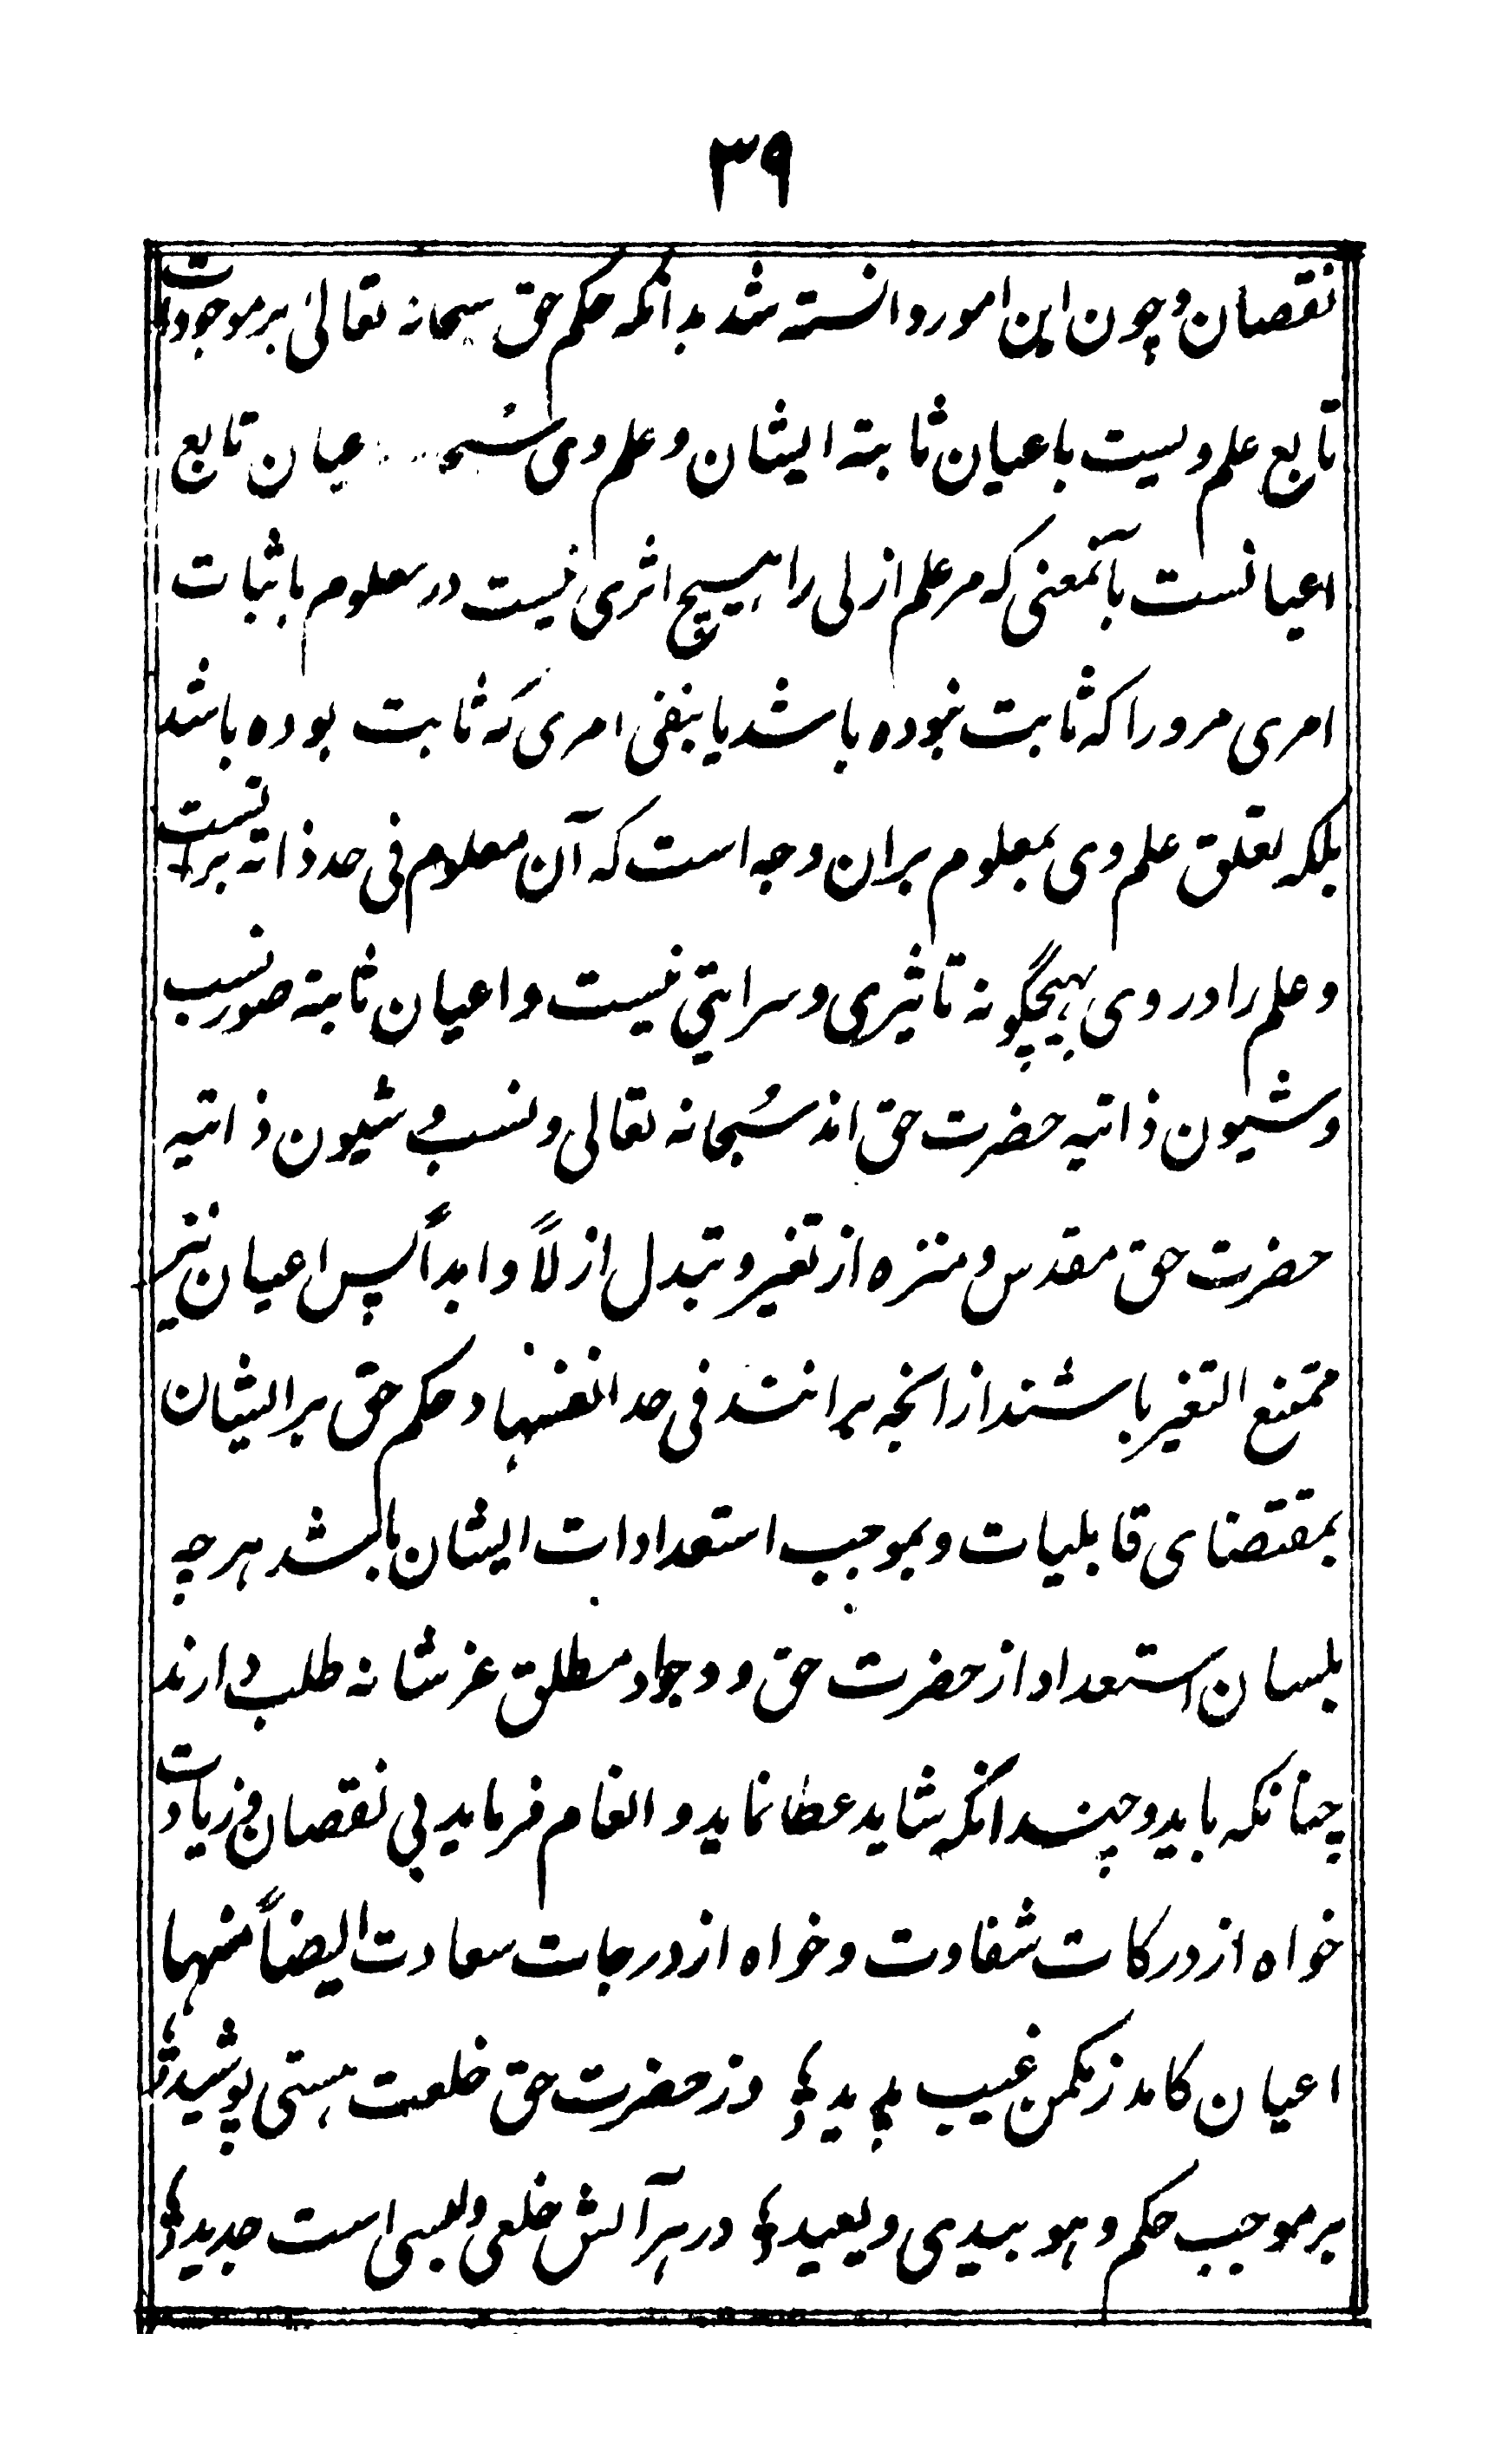 ۳۹
نقصان و چون این امور دانسته شد بدانکه حکم حق سبحانه تعالیٰ بر موجودات
تابع علم ویست باعیان ثابتۀ ایشان و علم وی سبحا عیان تابع
اعیانست بآنمعنی که مر علم ازلی را هیچ اثری نیست در معلوم باثبات
امری مرورا که ثابت نبوده باشد یا بنفی امری که ثابت بوده باشد
بلکه تعلق علم وی بمعلوم بران وجه است که آن معلوم فی حد ذاته برانست
و علم را در وی بهیچگونه تاثیری و سرایتی نیست و اعیان ثابته صور نسب
و شیون ذاتیه حضرت حق اند سُبحانه تعالی و نسب و شیون ذاتیه
حضرت حق مقدس و منزه از تغیر و تبدل ازلاً و ابداً پس اعیان نیز
ممتنع التغیر باشند از انچه برانند فی حد انفسها و حکم حق بر ایشان
بمقتضای قابلیات و بموجب استعدادات ایشان باشد هر چه
بلسان استعداد از حضرت حق و وجواد مطلق عز شانه طلب دارند
چنانکه باید و چندانکه شاید عطا نماید و انعام فرماید بی نقصان و زیادت
خواه از درکات شقاوت و خواه از درجات سعادت ایضاً منها
اعیان کامد ز مکمن غیب پدید؛ وز حضرت حق خلعت هستی پوشید؛
بر موجب حکم و هو یبدی و یعید؛ در هر آنش خلعی و لبسی است جدید؛